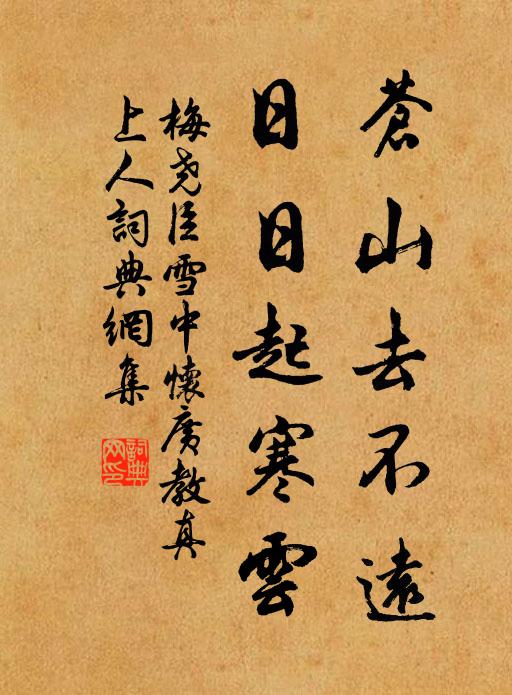 蒼山去不遠
日日起寒雲
梅尧臣雪中懷廣教真
上人詞典網集
詞典網印